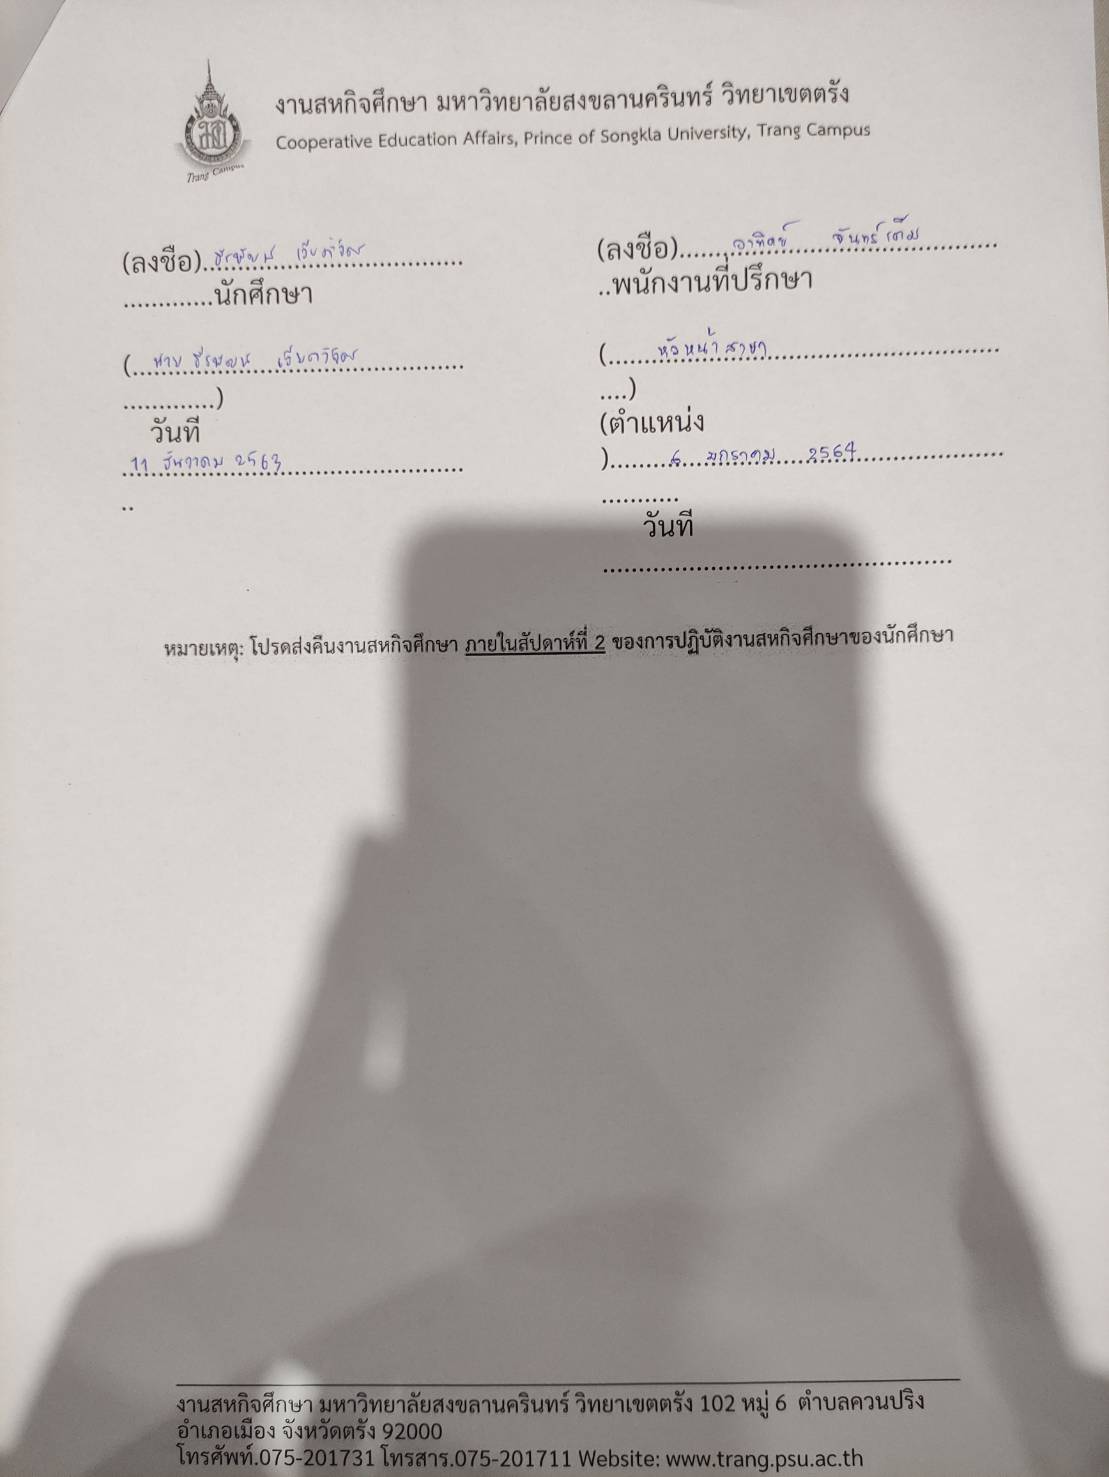 งานสหกิจศึกษา มหาวิทยาลัยสงขลานครินทร์ วิทยาเขตตรัง
Cooperative Education Affairs, Prince of Songkla University, Trang Campus
Trang Campus
(ลงชื่อ)................................
.............นักศึกษา
(... นาย ................................
.............)
วันที่
11 ธันวาคม 2563
..
(ลงชื่อ)........อาทิตย์ จันทร์เต็ม........
..พนักงานที่ปรึกษา
(.......หัวหน้าสาขา................................
....)
(ตำแหน่ง
)........6 มกราคม 2564................
...........
วันที่
................................................
หมายเหตุ: โปรดส่งคืนงานสหกิจศึกษา ภายในสัปดาห์ที่ 2 ของการปฏิบัติงานสหกิจศึกษาของนักศึกษา
งานสหกิจศึกษา มหาวิทยาลัยสงขลานครินทร์ วิทยาเขตตรัง 102 หมู่ 6 ตำบลควนปริง
อำเภอเมือง จังหวัดตรัง 92000
โทรศัพท์.075-201731 โทรสาร.075-201711 Website: www.trang.psu.ac.th